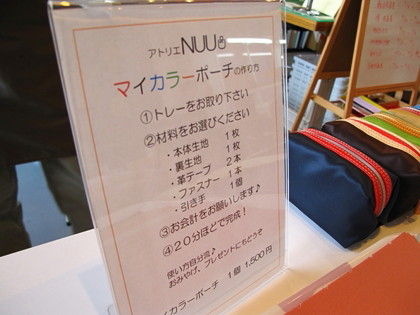 アトリエNUU
マイカラーポーチの作り方
①トレーをお取り下さい
②材料をお選びください
・本体生地 1枚
・裏生地 1枚
・革テープ 2本
・ファスナー 1本
・引き手 1個
③お会計をお願いします♪
④20分ほどで完成!
使い方自分流♪
おみやげ、プレゼントにもどうぞ
マイカラーポーチ 1個 1,500円